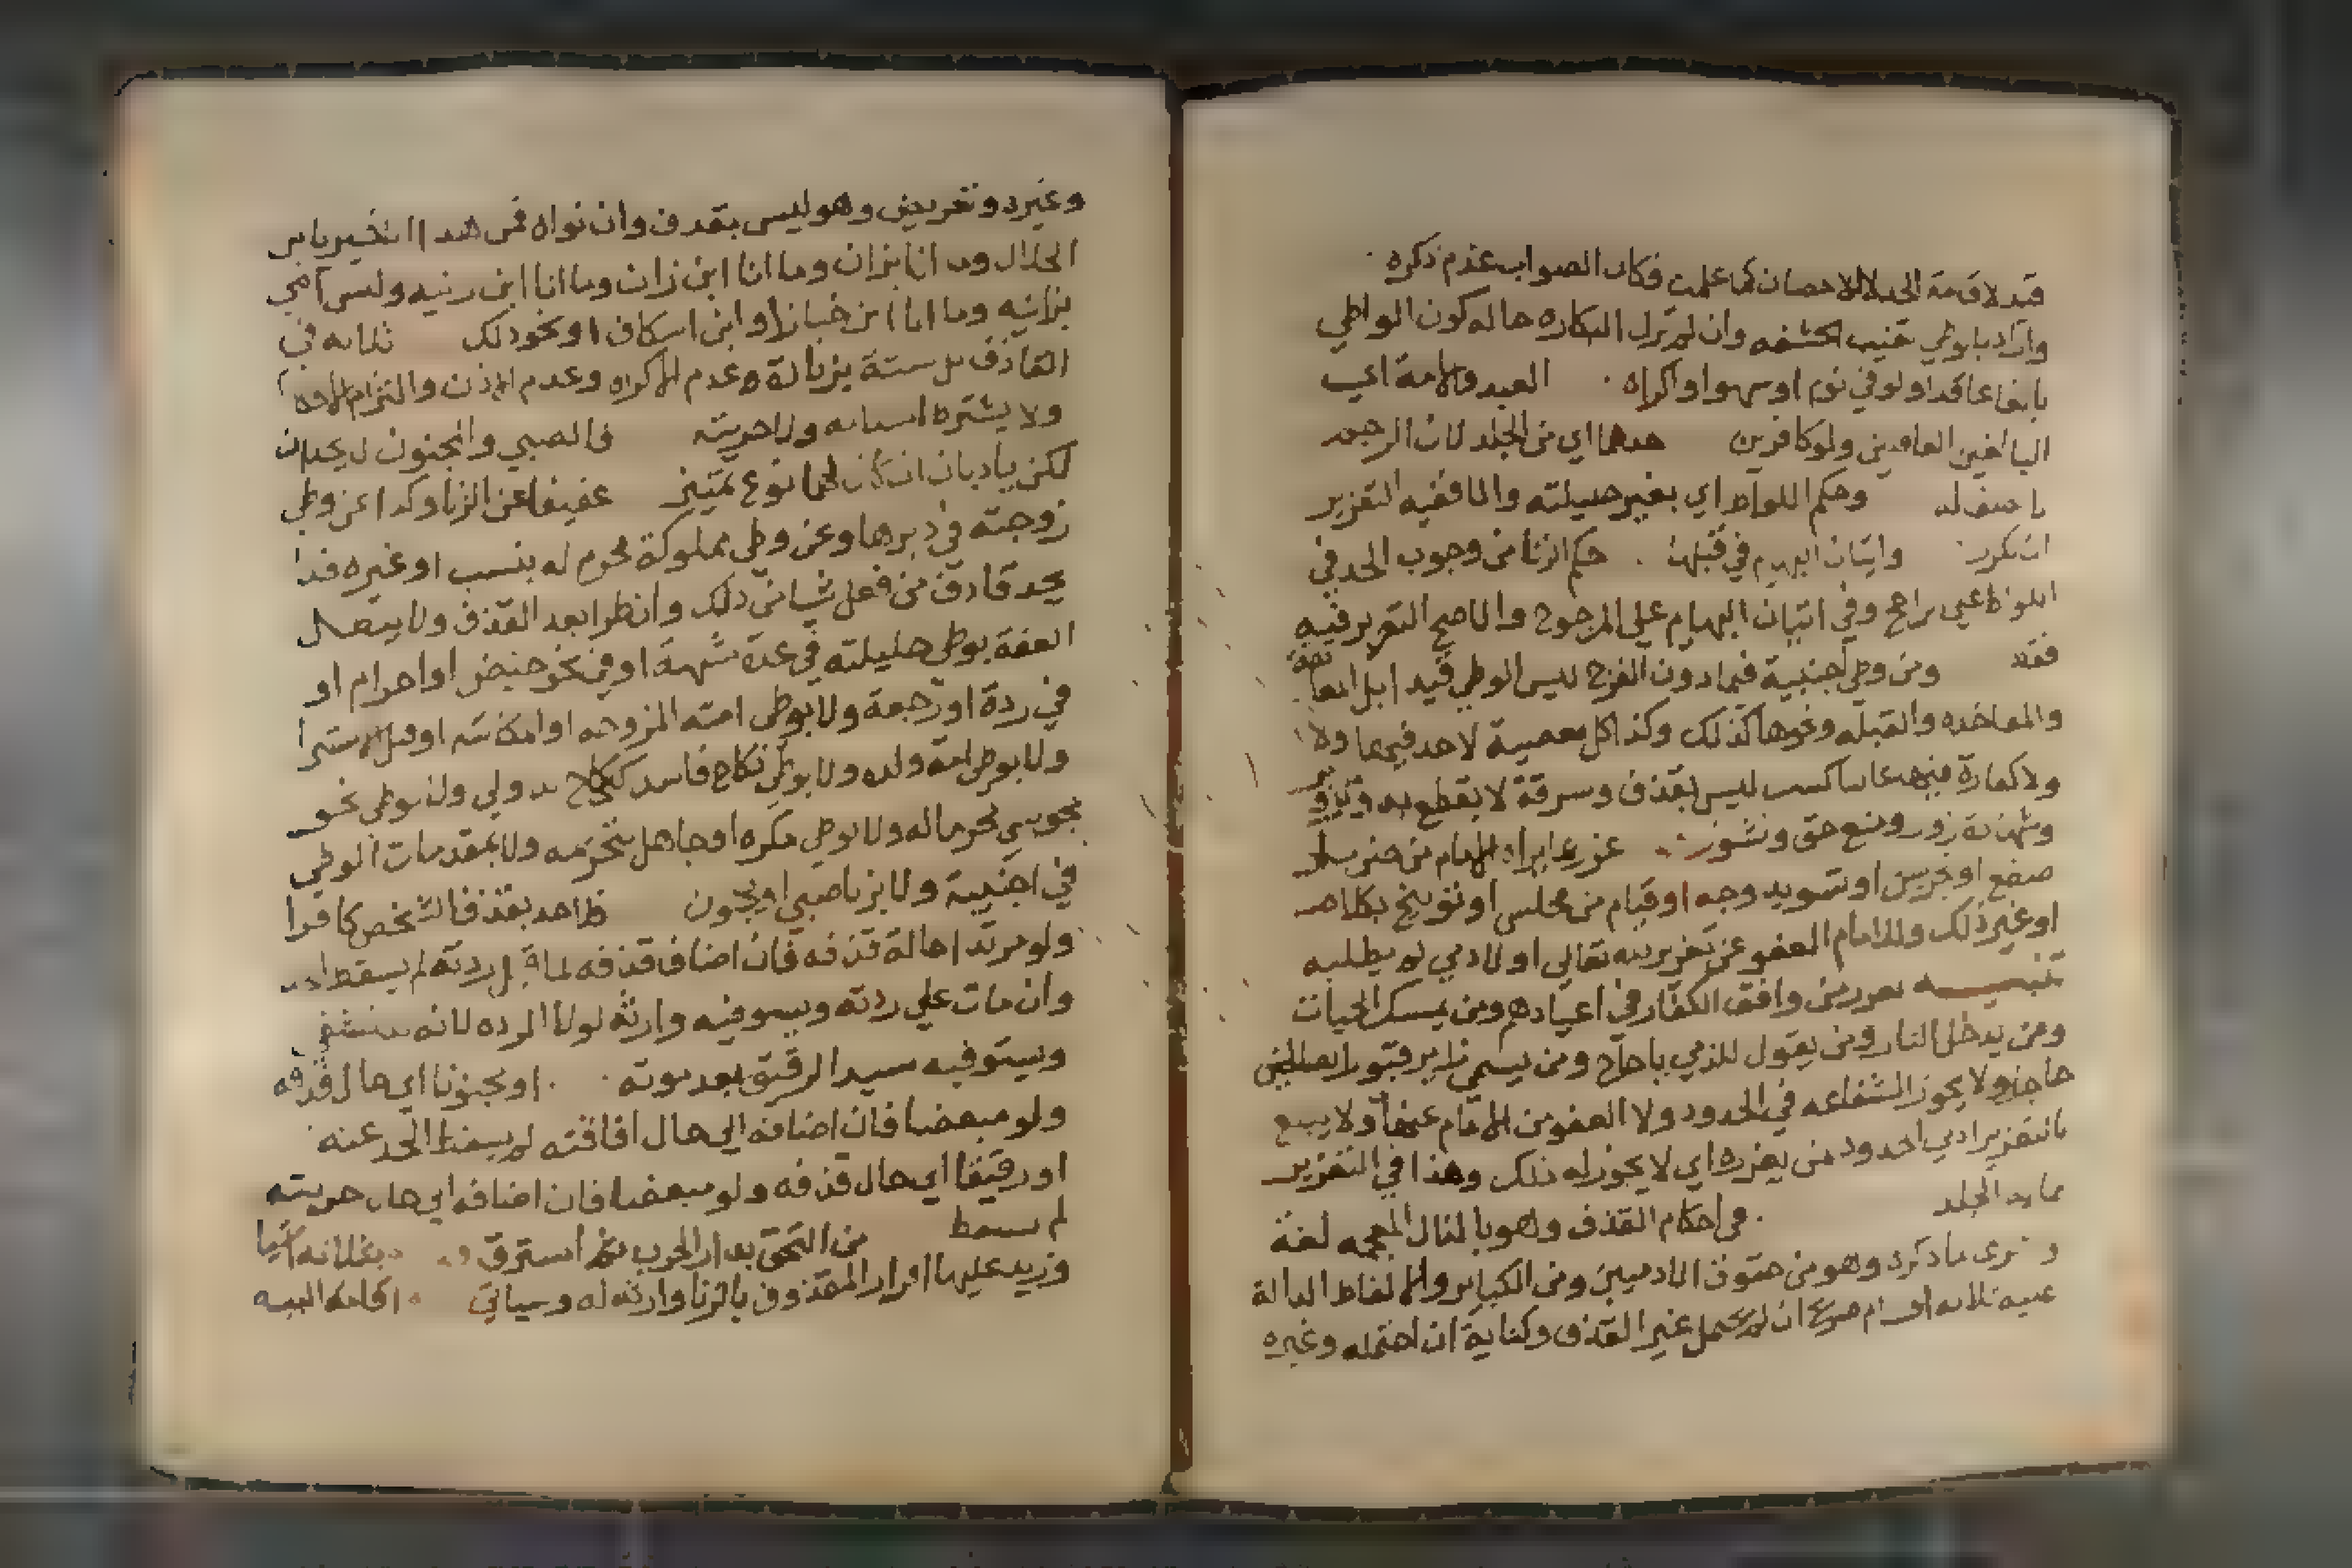 قيد لاقامة الحد لا للاحصان كما علمت فكان الصواب عدم ذكره
وارادبا بوطي تغييب الحشفه وان لم تزل البكاره حاله كون الواطي
بالغا عاقلا ولو في نوم او سهو او اكراه العبد والامة اي
البالغين العاقلين ولو كافرين حدهما اي من الجلد لان الرجم
لا ينصف له وحكم اللواط اي بغير حليلته والا ففيه التعزير
ان تكرر واتيان البهايم في قبلها حكم الزنا من وجوب الحد في
اللواط علي الراجح وفي اتيان البهايم علي المرجوح والاصح التعزير فيه
فقط ومن وطي اجنبية فيما دون الفرج ليس الوطي قيد ا بل المعانقة
والمفاخذه والقبله ونحوها كذلك وكذا كل معصية لا حد فيها ولا
ولا كفارة غالبا كسب ليس بقذف وسرقة لا يقطع به وتزوير
وشهادة زور ومنع حق ونشوز عزر بما يراه الامام من ضرب
صفع او جرس او تسويد وجه او قيام من مجلس او توبيخ بكلام
او غير ذلك وللامام العفو عن تعزير لله تعالي او لادمي لم يطلبه
تنبيه يعزر من وافق الكفار في اعيادهم ومن يمسك الحيات
ومن يدخل النار ومن يقول للذمي يا حاج ومن يسمي زاير قبور الصالحين
حاجا ولا يجوز الشفاعه في الحدود ولا العفو من الامام عنها ولا يبلغ
بالتعزير ادني الحدود من يعزره اي لا يجوز له ذلك وهذا في التعزير
بماية الجلد
في احكام القذف وهو بالذال المعجمه لغة
ما ذكره وهو من حقوق الادميين ومن الكباير والالفاظ الدالة
عليه ثلاثه اقسام صريح ان لم يحتمل غير القذف وكناية ان احتمله وغيره
وغيره وتعريض وهو ليس بقذف وان نواه فمن هذا الاخير يا ابن
الحلال وما انا بزان وما انا ابن زان وما انا ابن زنيه وليس امي
بزانيه وما انا ابن خباز او ابن اسكاف او نحو ذلك ثلاثه في
القاذف بل ستة بزيادة وعدم الاكراه وعدم الاذن والتزام الاحكام
ولا يشترط اسلامه ولا حريته فالصبي والمجنون لا يحدان
لكن يادبان ان كان لهما نوع تمييز عفيفا عن الزنا وكذا عن وطي
زوجته في دبرها وعن وطي مملوكة محرم له بنسب او غيره فلا
يحد قاذف من فعل شيا من ذلك وان طرا بعد القذف ولا يبطل
العفة بوطي حليلته في عدة شبهة او في نحو حيض او احرام او
في ردة او رجعة ولا بوطي امته المزوجه او المكاتبه او قبل الاستبرا
ولا بوطي امة ولده ولا بوطي نكاح فاسد كنكاح بلا ولي ولا بوطي نحو
مجوسي محرما له ولا بوطي مكره او جاهل بتحريمه ولا بمقدمات الوطي
في اجنبية ولا بزنا صبي او مجنون فلا حد بقذف الشخص كافرا
ولو مرتدا حالة قذفه فان اضاف قذفه لما قبل ردته لم يسقط الحد
وان مات علي ردته ويستوفيه وارثه لولا الرده لانه للتشفي
ويستوفيه سيد الرقيق بعد موته او مجنونا اي حال قذفه
ولو مبعضا فان اضافه الي حال افاقته لم يسقط الحد عنه
او رقيقا اي حال قذفه ولو مبعضا فان اضافه الي حال حريته
لم يسقط من التحق بدار الحرب ثم استرق
وزيد عليها اقرار المقذوف بالزنا وارثه له وسياتي اقامة البينه